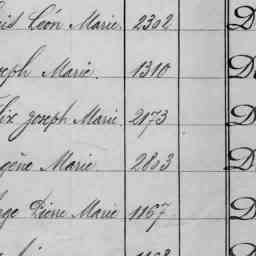 Léon Marie. 2302 D
Marie. 1310 D
Joseph Marie 2173 D
Marie 2803 D
Pierre Marie 1167 D